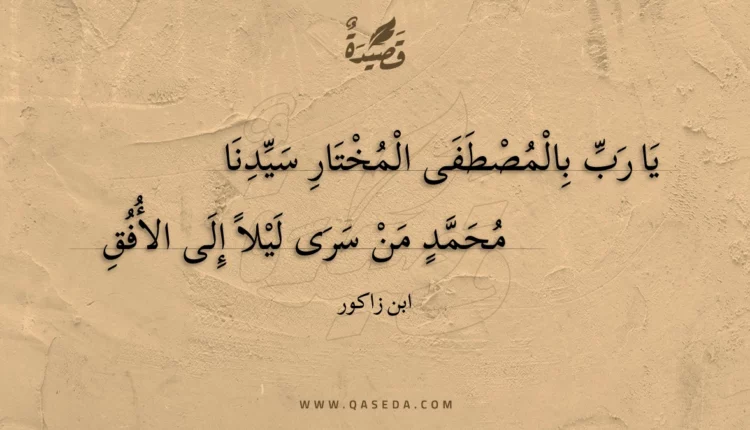 قَصِيْدَةٌ
يَا رَبِّ بِالْمُصْطَفَى الْمُخْتَارِ سَيِّدِنَا
مُحَمَّدٍ مَنْ سَرَى لَيْلاً إِلَى الأُفُقِ
ابن زاكور
WWW.QASEDA.COM